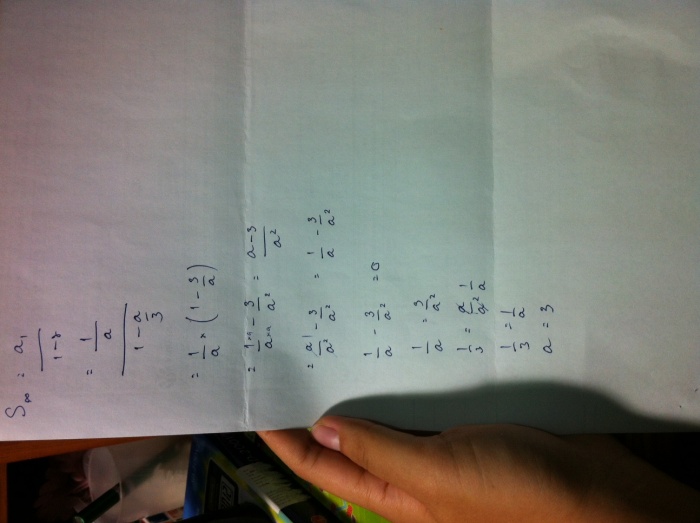 S∞ = a₁ / (1-r)
= (1/a) / (1 - a/3)
= 1/a × (1 - 3/a)
= (1×a)/(a×a) - 3/a² = (a-3)/a²
= a1/a² - 3/a² = 1/a - 3/a²
1/a - 3/a² = 0
1/a = 3/a²
1/3 = a/a² 1/a
1/3 = 1/a
a = 3